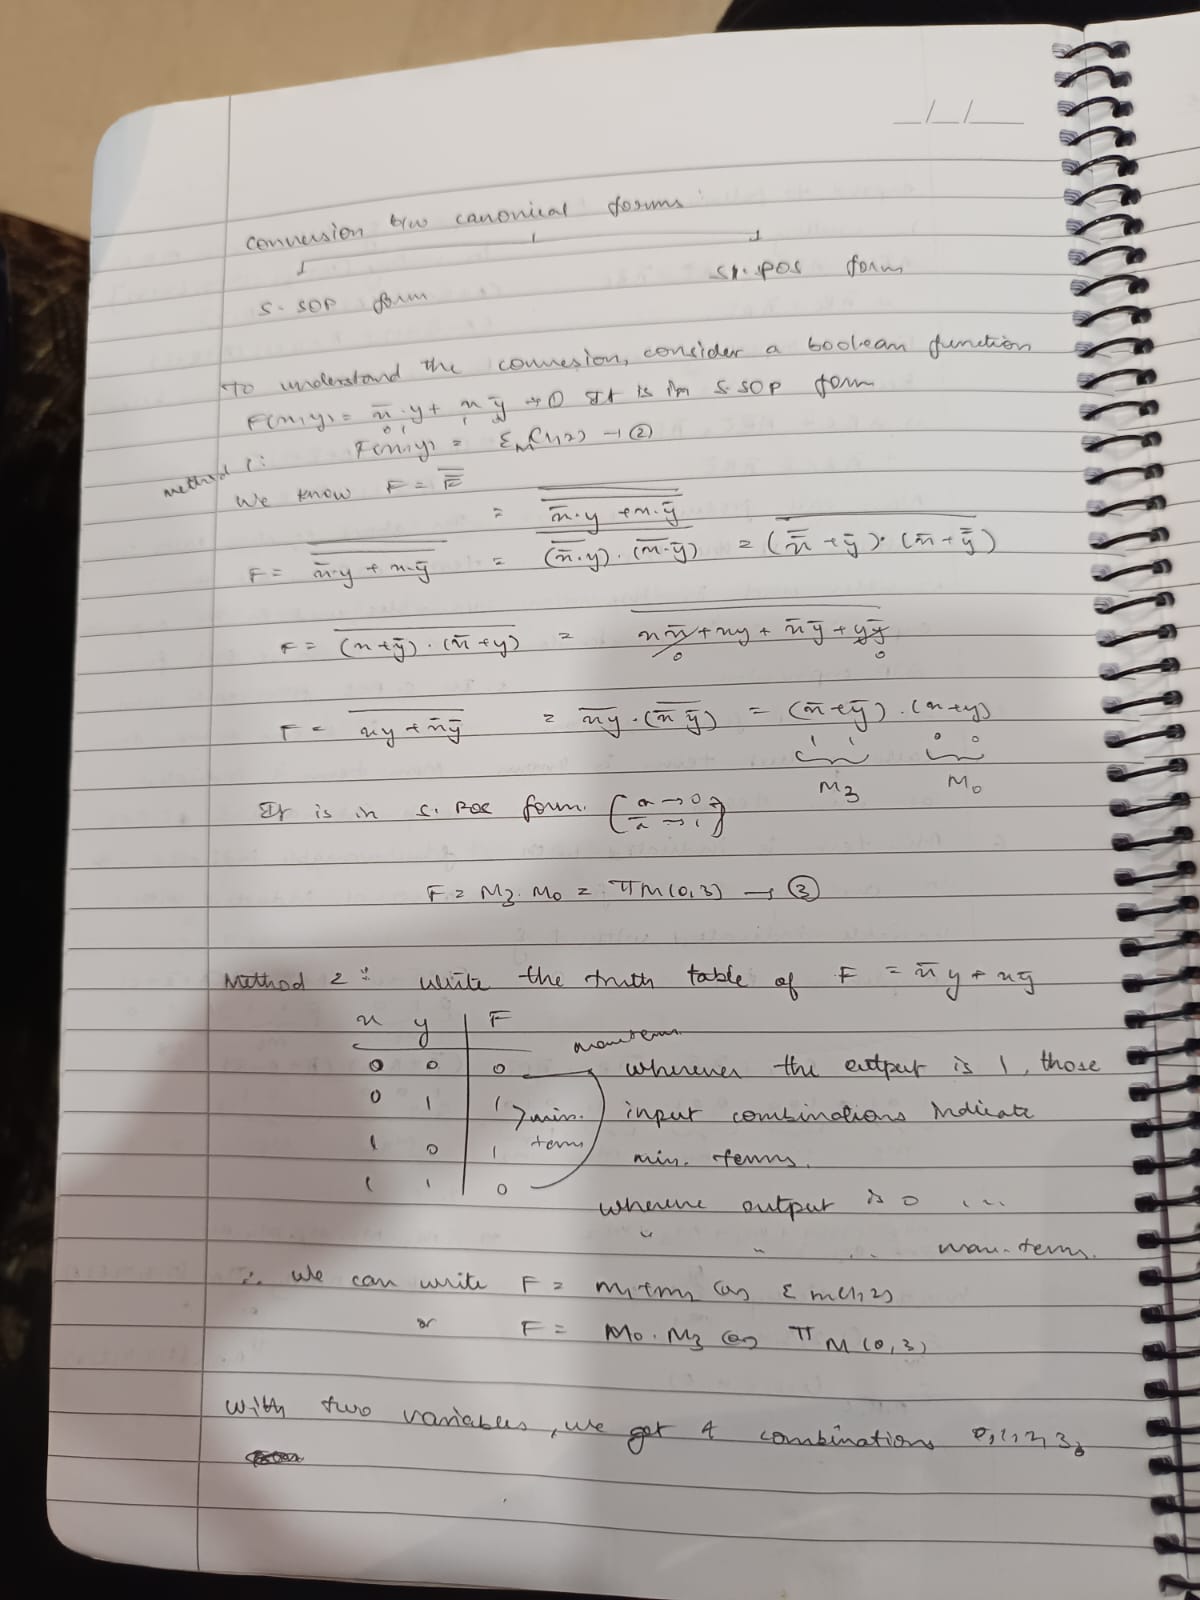 __/__/____
conversion b/w canonical forms:
S. SOP form
St. POS form
To understand the conversion, consider a boolean function
F(x,y) = x̅.y + x y̅ → ① It is in S SOP form
0 1 1 0
F(x,y) = Σm(1,2) → ②
method 1:
We know F = F̿
= \overline{\overline{x̅.y + x.y̅}}
F = \overline{\overline{x̅.y + x.y̅}} = \overline{\overline{(x̅.y)} . \overline{(x.y̅)}} = \overline{(x̿ + y̅) . (x̅ + y̿)}
F = \overline{(x+y̅) . (x̅+y)} = \overline{xx̅ + xy + x̅y̅ + yy̅}
0 0
F = \overline{xy + x̅y̅} = \overline{xy} . \overline{(x̅ y̅)} = (x̅+y̅) . (x+y)
1 1 0 0
M3 M0
It is in S. POS form. (x → 0, x̅ → 1)
F = M3. M0 = πM(0,3) → ③
Method 2: write the truth table of F = x̅y + xy̅
x y F
maxterm
0 0 0 wherever the output is 1, those
0 1 1 } min. input combinations indicate
1 0 1 term min. terms.
1 1 0
where output is 0 ...
" " .. max-terms.
∴ We can write F = m1+m2 (or) Σm(1,2)
or F = M0. M3 (or) πM(0,3)
With two variables, we get 4 combinations 0,1,2,3,